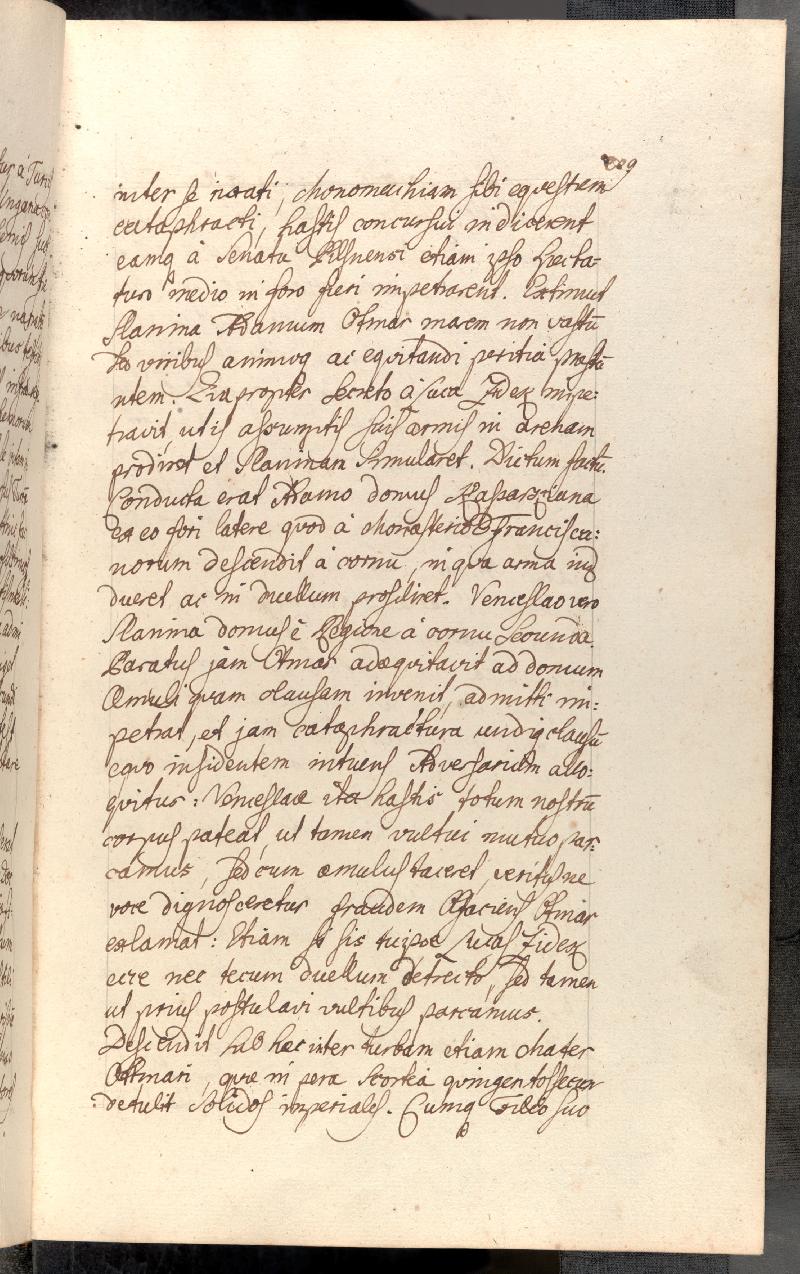 209
inter se irati, Monomachiam sibi equestrem
cataphracti, hastis concursui indicerent
eamq à Senatu Pilsnensi etiam ipso Specta-
turo medio in foro fieri impetrarent. Extimuit
Slanina Adamum Otmar marem non vastū
sed viribus animisq ac equitandi peritia præstā
ntem. Quapropter secreto à Luca Zidek impe-
travit, ut is assumptis suis armis in arenam
prodiret et Slaninam simularet. Dictum factū.
Conducta erat Adamo domus Kasparziana
ex eo fori latere quod à Monasterio Francisca:
norum descendit à cornu, in qua arma in
dueret ac in duellum prosiliret. Venceslao vero
Slanina domus è Regione à cornu Secunda.
Paratus jam Otmar adæquitavit ad domum
Æmuli quam clausam invenit, admitti im:
petrat, et jam cataphractura undiq clausū
equo insidentem intuens Adversarium allo:
quitur: Venceslae ita hastis totum nostrū
corpus pateat, ut tamen vultui mutuo par:
camus, Sed cum æmulus taceret, veritus ne
voce dignosceretur fraudem Otmar
exlamat: Etiam si sis tuipse Lucas Zidek
ecce nec tecum duellum detrecto, Sed tamen
ut prius postulavi vultibus parcamus.
Descendit sub hæc inter turbam etiam Mater
Ottmari, quæ in pera scortea quingentos secum
detulit Solidos imperiales. Cumq Filio suo